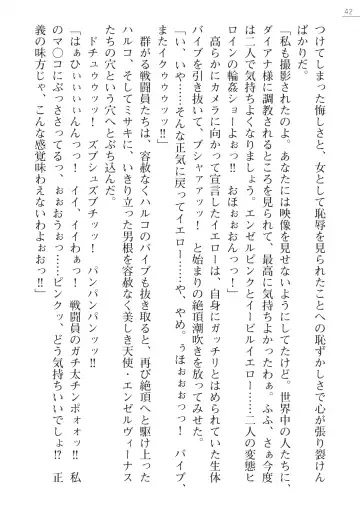 42
つけてしまった悔しさと、女として恥辱を見られたことへの恥ずかしさで心が張り裂けん
ばかりだ。
「私も撮影されたのよ。あなたには映像を見せないようにしてたけど。世界中の人たちに、
ダイアナ様に調教されるところを見られて、最高に気持ちよかったわぁ。ふふ、さぁ今度
は二人で気持ちよくなりましょう。エンゼルピンクとイービルイエロー……二人の変態ヒ
ロインの輪姦ショーよぉっ!! おほぉぉおんっっ!」
高らかにカメラに向かって宣言したイエローは、自身にガッチリとはめられていた生体
バイブを引き抜いて、ブシャァァッ! と始まりの絶頂潮吹きを放ってみせた。
「い、いや……そんな正気に戻ってイエロー……や、やめ。ぅほぉぉおっっ! バイブ、
またイクゥゥゥッッ!」
群がる戦闘員たちは、容赦なくハルコのバイブも抜き取ると、再び絶頂へと昇り詰めた
ハルコ、そしてミサキに、いきり立った男根を容赦なく美しき天使・エンゼルヴィーナス
たちの穴という穴へとぶち込んだ。
ドチュゥゥッッ! ズプシュズプチッッ! パンパンパンッッ!!
「はぁぉひぃぃいんんっっ! イイ、イイわぁっ! 戦闘員のガチ太チンポォォッ!! 私
のマ〇コにぶっささってるっ、ぉぉおうぉっ……ピンクッ、どう気持ちいいでしょ!? 正
義の味方じゃ、こんな感覚味わえないわよぉおっ!!